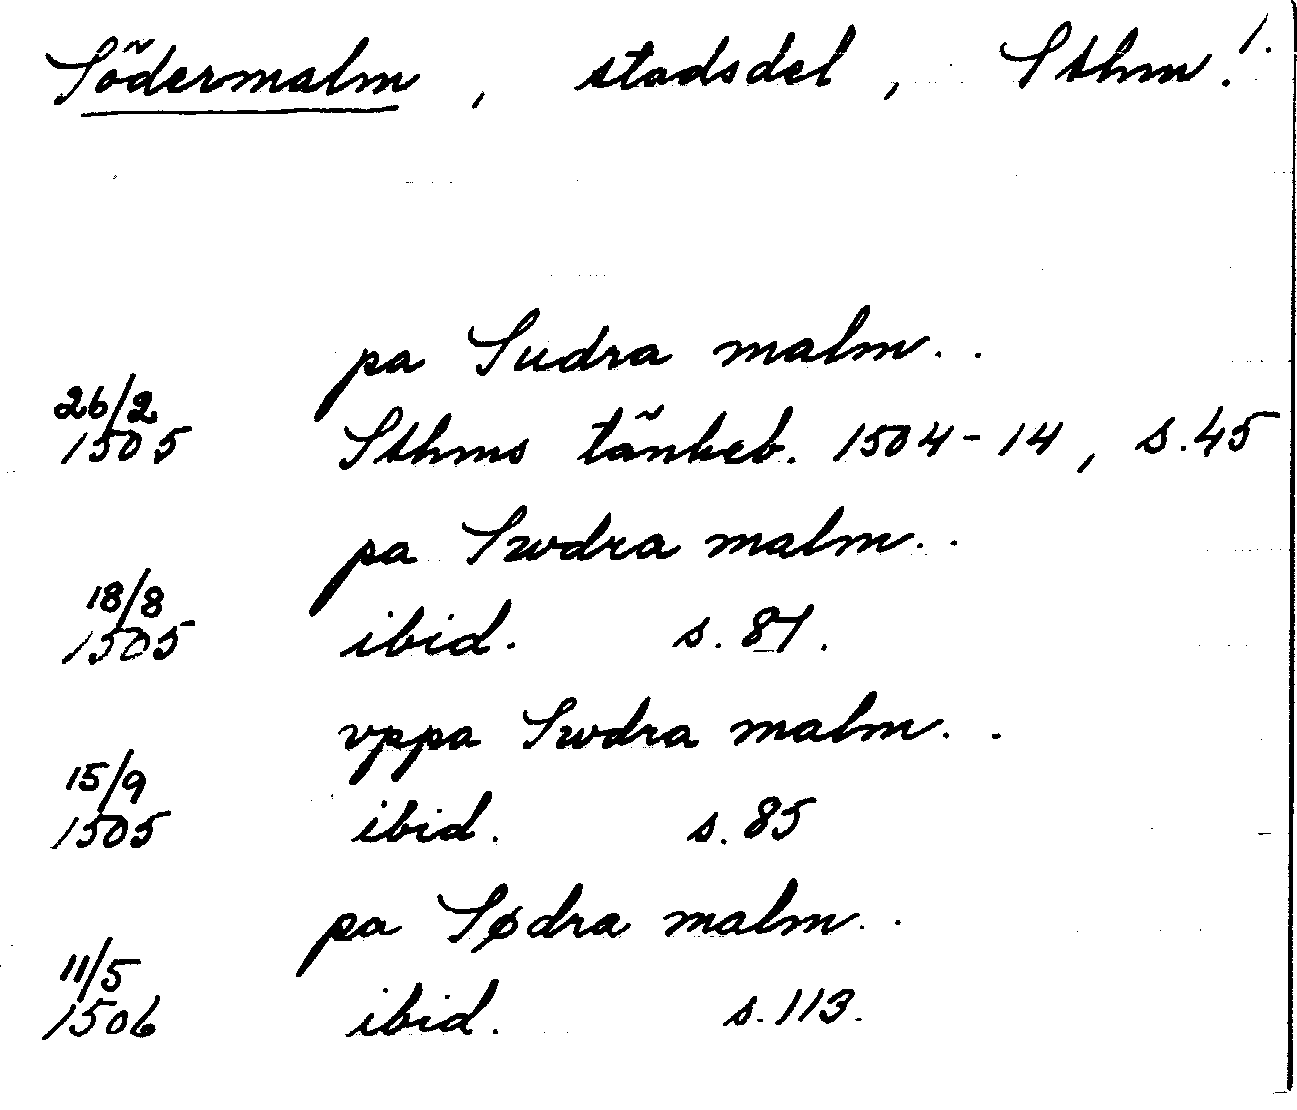 Södermalm, stadsdel, Sthm. 1.
pa Sudra malm..
26/2
1505 Sthms tänkeb. 1504-14, s.45
pa Swdra malm..
18/8
1505 ibid. s.81.
vppa Swdra malm..
15/9
1505 ibid. s.85
pa Sødra malm..
11/5
1506 ibid. s.113.